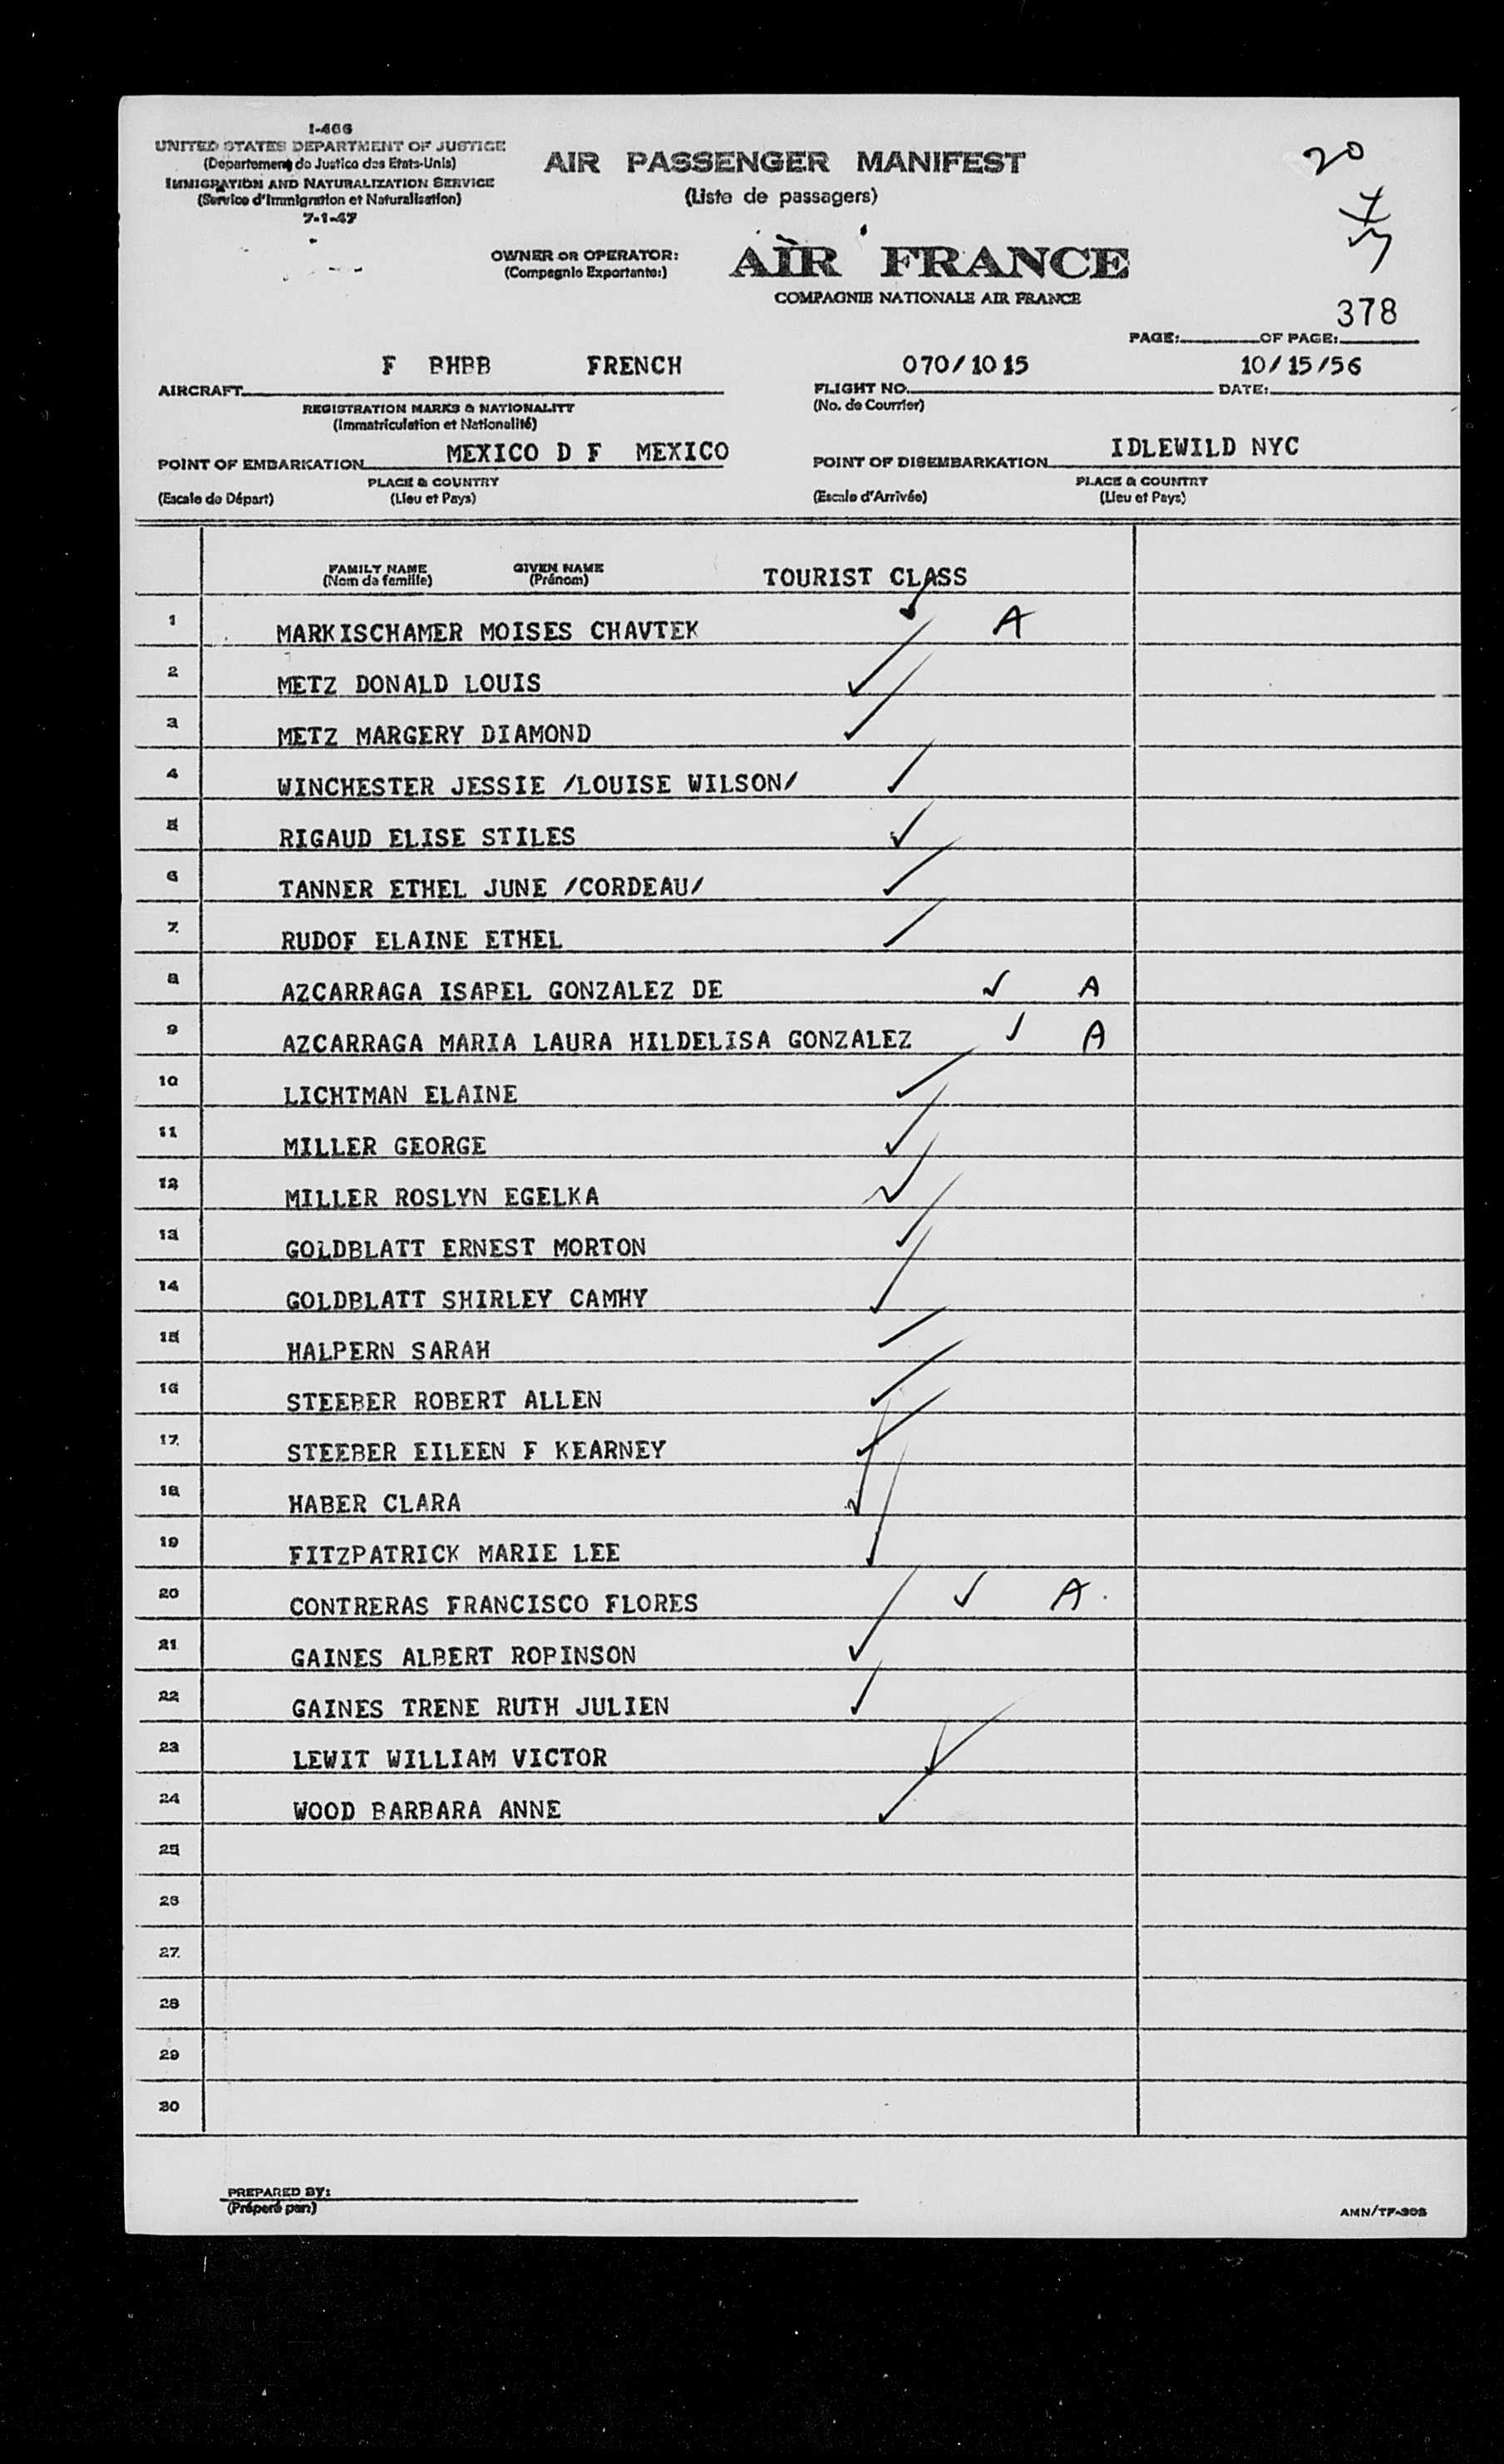 I-466
UNITED STATES DEPARTMENT OF JUSTICE
(Departement de Justice des Etats-Unis)
IMMIGRATION AND NATURALIZATION SERVICE
(Service d'Immigration et Naturalisation)
7-1-47
AIR PASSENGER MANIFEST
(Liste de passagers)
20
OWNER OR OPERATOR:
(Compagnie Exportante:)
AIR FRANCE
COMPAGNIE NATIONALE AIR FRANCE
378
PAGE: OF PAGE:
F BHBB FRENCH 070/1015 10/15/56
AIRCRAFT FLIGHT NO. DATE:
REGISTRATION MARKS & NATIONALITY (No. de Courrier)
(Immatriculation et Nationalité)
MEXICO D F MEXICO IDLEWILD NYC
POINT OF EMBARKATION POINT OF DISEMBARKATION
PLACE & COUNTRY PLACE & COUNTRY
(Escale de Départ) (Lieu et Pays) (Escale d'Arrivée) (Lieu et Pays)
FAMILY NAME GIVEN NAME
(Nom de famille) (Prénom) TOURIST CLASS
1 MARKISCHAMER MOISES CHAVTEK ✓ A
2 METZ DONALD LOUIS ✓
3 METZ MARGERY DIAMOND ✓
4 WINCHESTER JESSIE /LOUISE WILSON/ ✓
5 RIGAUD ELISE STILES ✓
6 TANNER ETHEL JUNE /CORDEAU/ ✓
7 RUDOF ELAINE ETHEL ✓
8 AZCARRAGA ISAPEL GONZALEZ DE ✓ A
9 AZCARRAGA MARIA LAURA HILDELISA GONZALEZ ✓ A
10 LICHTMAN ELAINE ✓
11 MILLER GEORGE ✓
12 MILLER ROSLYN EGELKA ✓
13 GOLDBLATT ERNEST MORTON ✓
14 GOLDBLATT SHIRLEY CAMHY ✓
15 HALPERN SARAH ✓
16 STEEBER ROBERT ALLEN ✓
17 STEEBER EILEEN F KEARNEY ✓
18 HABER CLARA ✓
19 FITZPATRICK MARIE LEE ✓
20 CONTRERAS FRANCISCO FLORES ✓ A
21 GAINES ALBERT ROPINSON ✓
22 GAINES TRENE RUTH JULIEN ✓
23 LEWIT WILLIAM VICTOR ✓
24 WOOD BARBARA ANNE ✓
25
26
27
28
29
30
PREPARED BY:
(Préparé par:)
AMN/TF-302